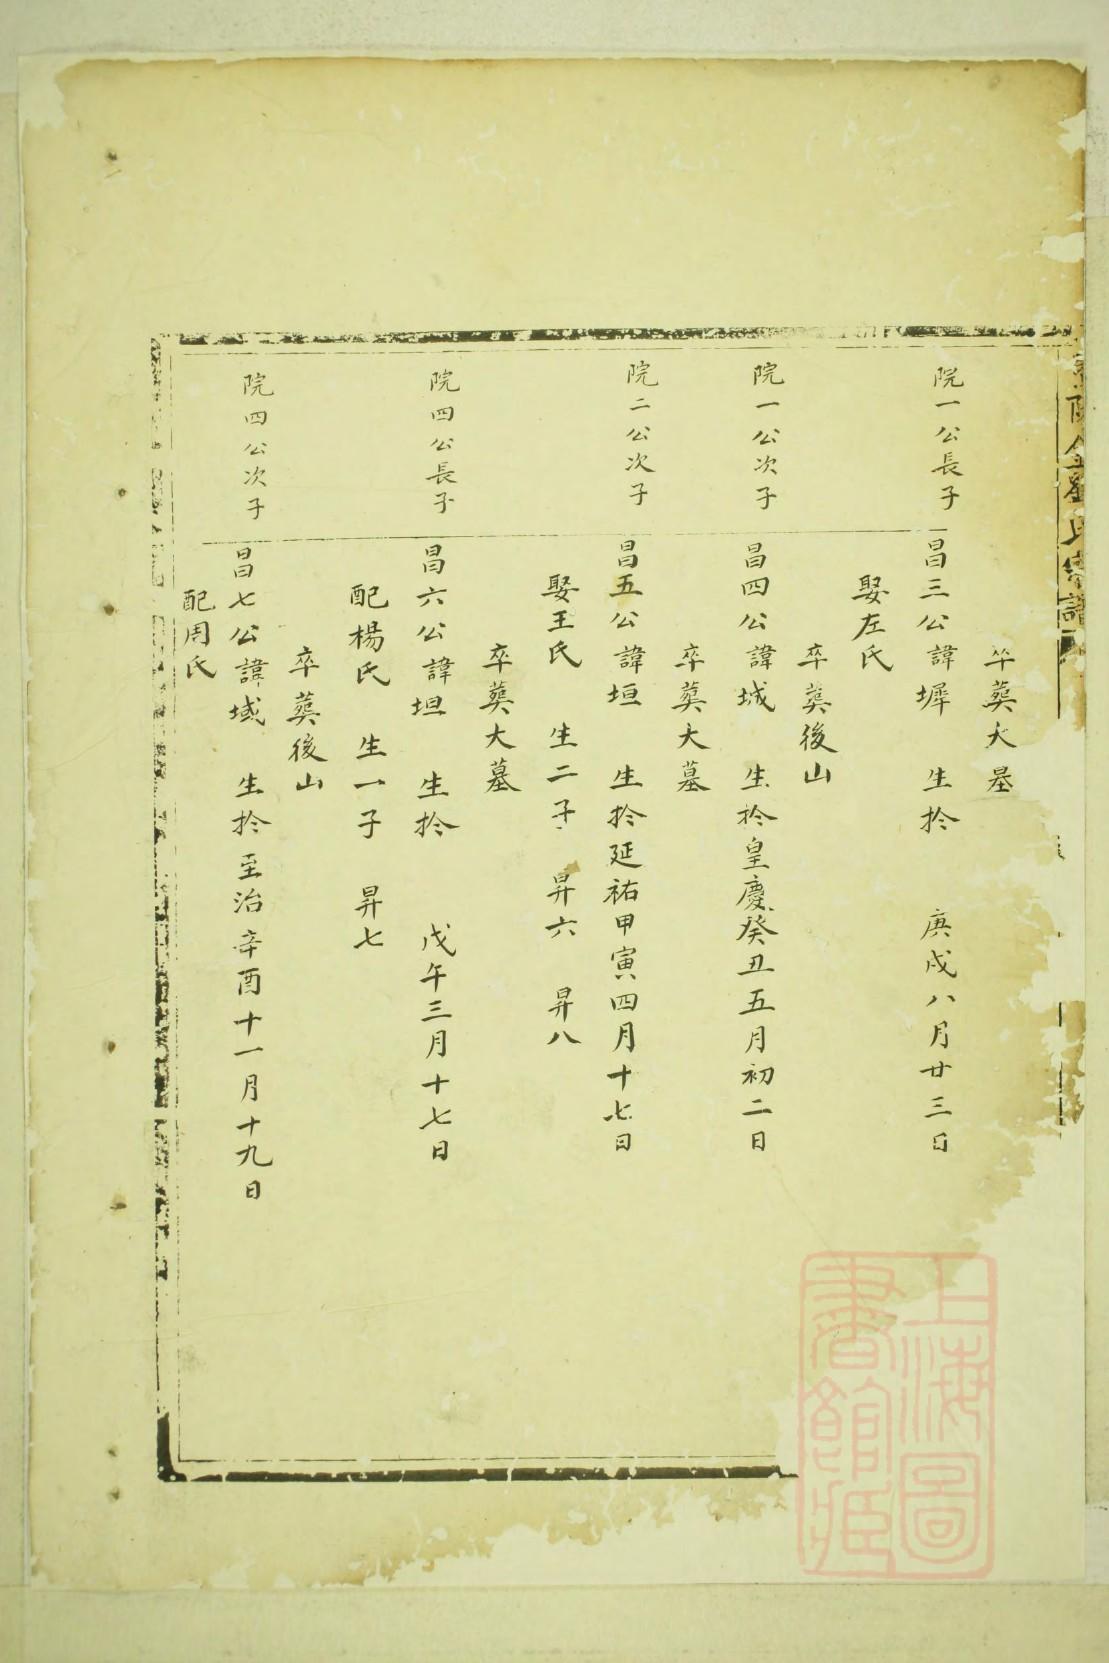 劉氏宗譜
卒葬大墓
院一公長子
昌三公諱墀 生扵 庚戌八月廿三日
娶左氏
卒葬後山
院一公次子
昌四公諱城 生扵皇慶癸丑五月初二日
卒葬大墓
院二公次子
昌五公諱垣 生扵延祐甲寅四月十七日
娶王氏 生二子 昇六 昇八
卒葬大墓
院四公長子
昌六公諱坦 生扵 戊午三月十七日
配楊氏 生一子 昇七
卒葬後山
院四公次子
昌七公諱域 生扵至治辛酉十一月十九日
配周氏
上海圖
書館藏